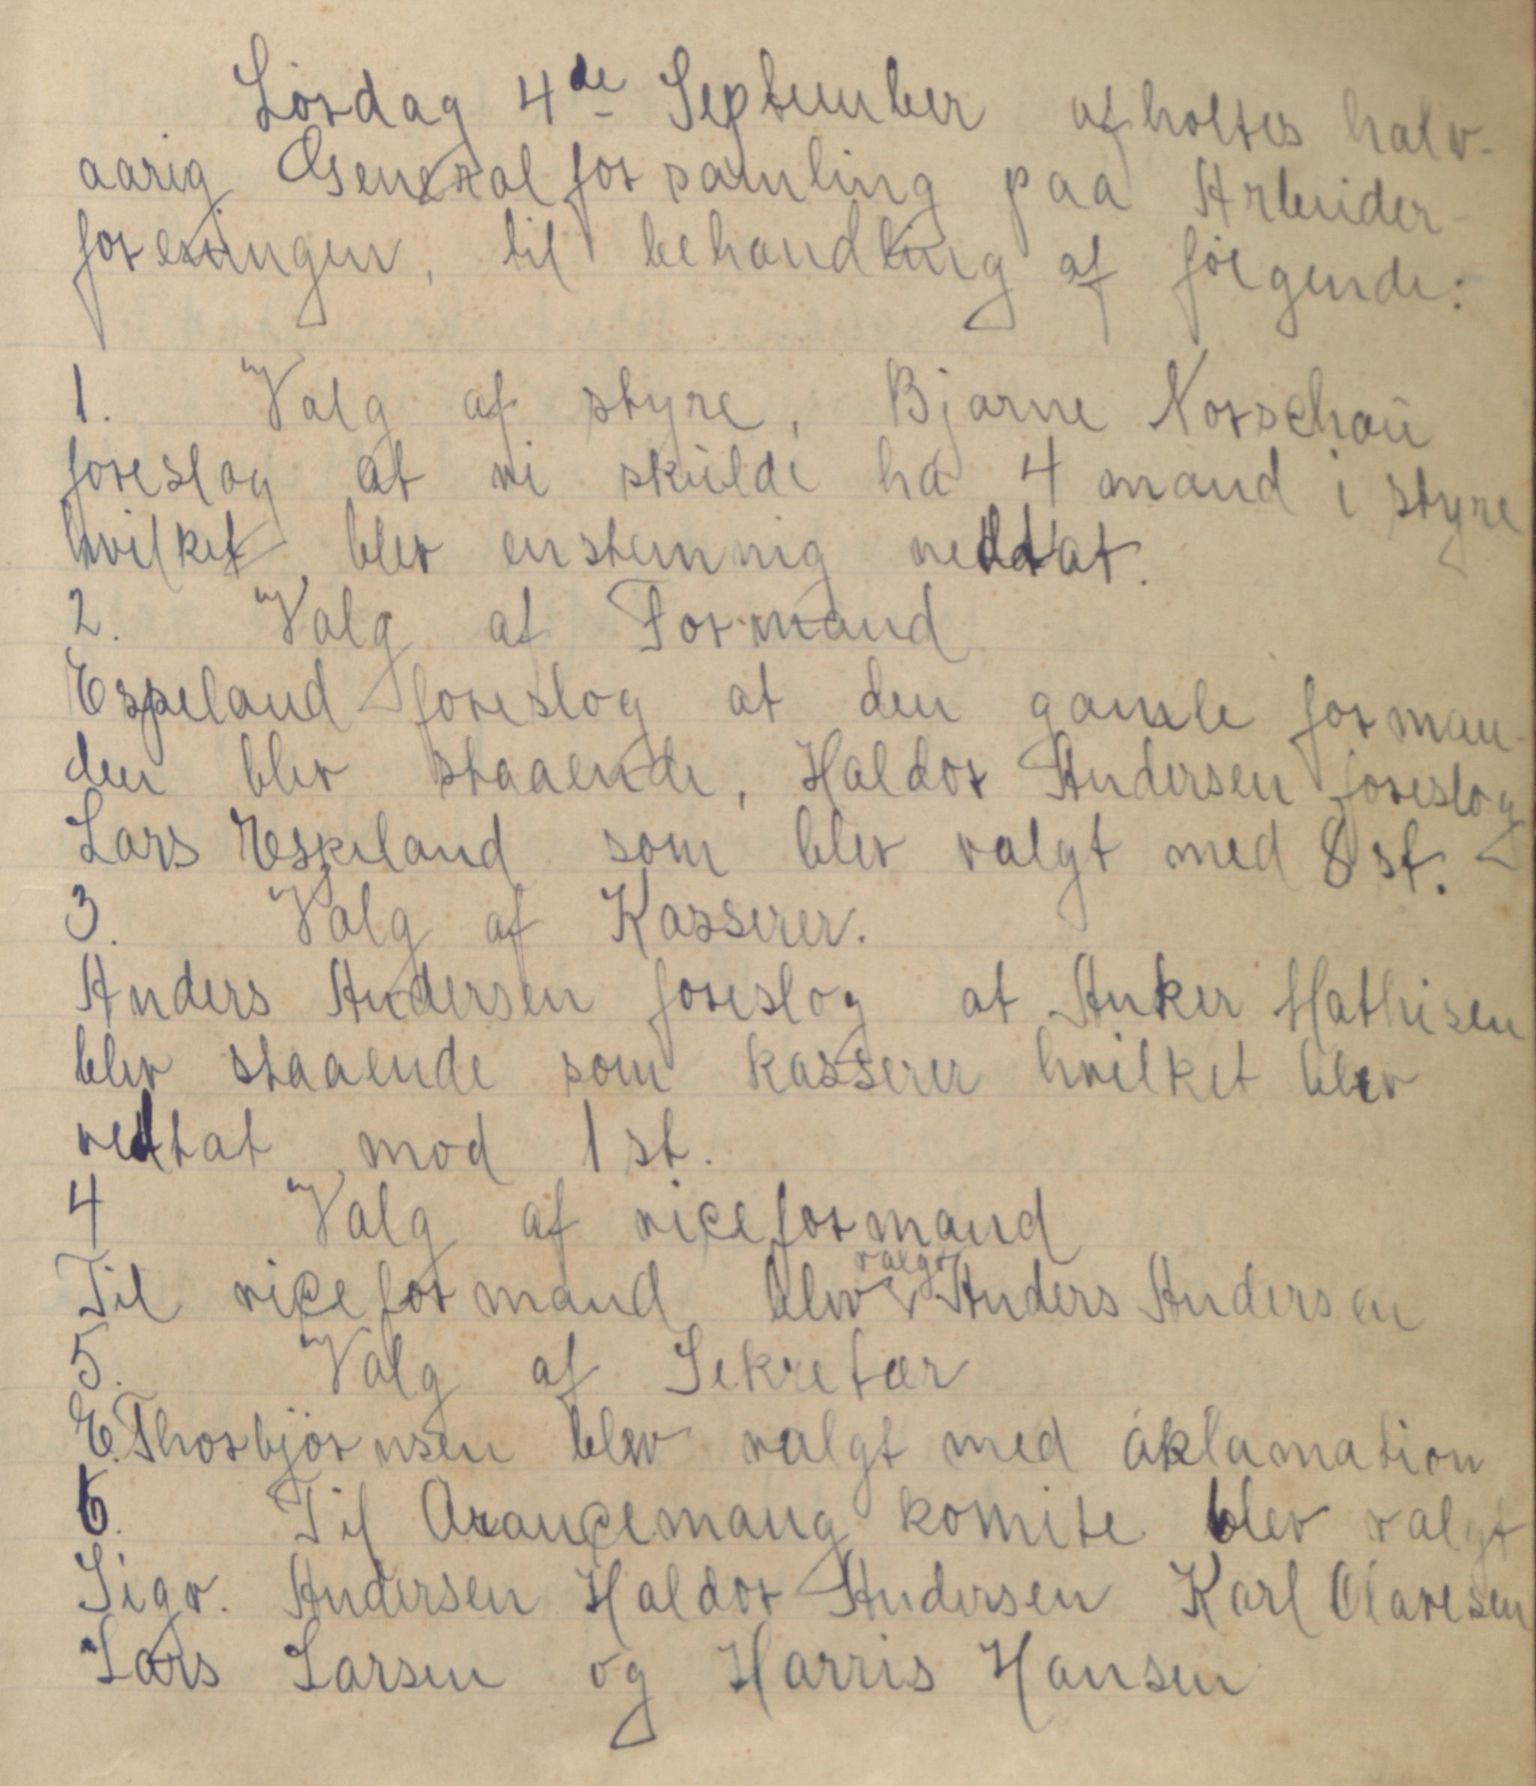 Lørdag 4de September afholtes halv-
aarig Generalforsamling paa Arbeider-
foreningen, til behandling af følgende:
1. Valg af styre, Bjarne Norschau
foreslog at vi skulde ha 4 mand i styre
hvilket blev enstemmig vedtat.
2. Valg af Formand
Espeland foreslog at den gamle forman-
den blev staaende, Haldor Andersen foreslog
Lars Eskeland som blev valgt med 8 st.
3. Valg af Kasserer.
Anders Andersen foreslog at Anker Mathisen
blev staaende som kasserer hvilket blev
vedtat mod 1 st.
4 Valg af viceformand
Til viceformand blev valgt Anders Andersen
5. Valg af Sekretær
E. Thorbjørnsen blev valgt med aklamation
6. Til Arancemang komite blev valgt
Sigv. Andersen Haldor Andersen Karl Olavesen
Lars Larsen og Harris Hansen